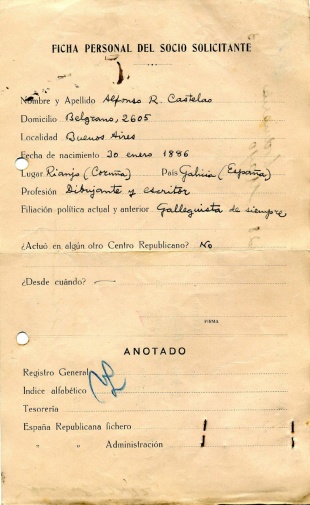 FICHA PERSONAL DEL SOCIO SOLICITANTE
Nombre y Apellido Alfonso R. Castelao
Domicilio Belgrano, 2605
Localidad Buenos Aires
Fecha de nacimiento 30 enero 1886
Lugar Rianjo (Coruña) País Galicia (España)
Profesión Dibujante y escritor
Filiación política actual y anterior Galleguista de siempre
¿Actuó en algún otro Centro Republicano? No
¿Desde cuándo? —
FIRMA
ANOTADO
Registro General
Indice alfabético
Tesorería
España Republicana fichero
" " Administración